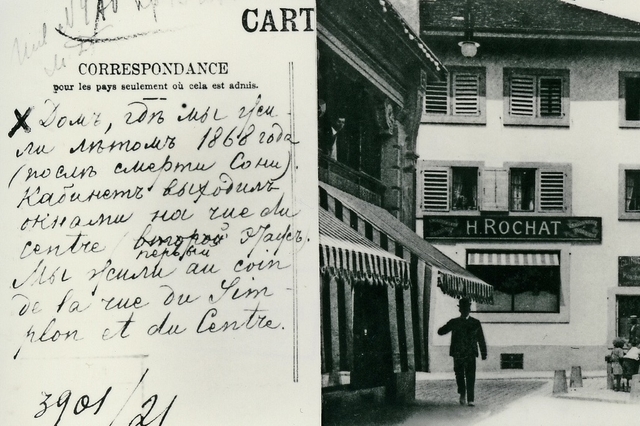 CART
CORRESPONDANCE
pour les pays seulement où cela est admis.
X Домъ, гдѣ мы жи-
ли лѣтомъ 1868 года
(послѣ смерти Сони).
Кабинетъ выходилъ
окнами на rue du
centre (второй этажъ).
первый
Мы жили au coin
de la rue du Sim-
plon et du Centre.
3901/21
H. ROCHAT